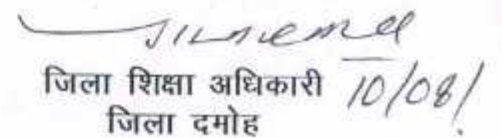 जिला शिक्षा अधिकारी 10/08/
जिला दमोह